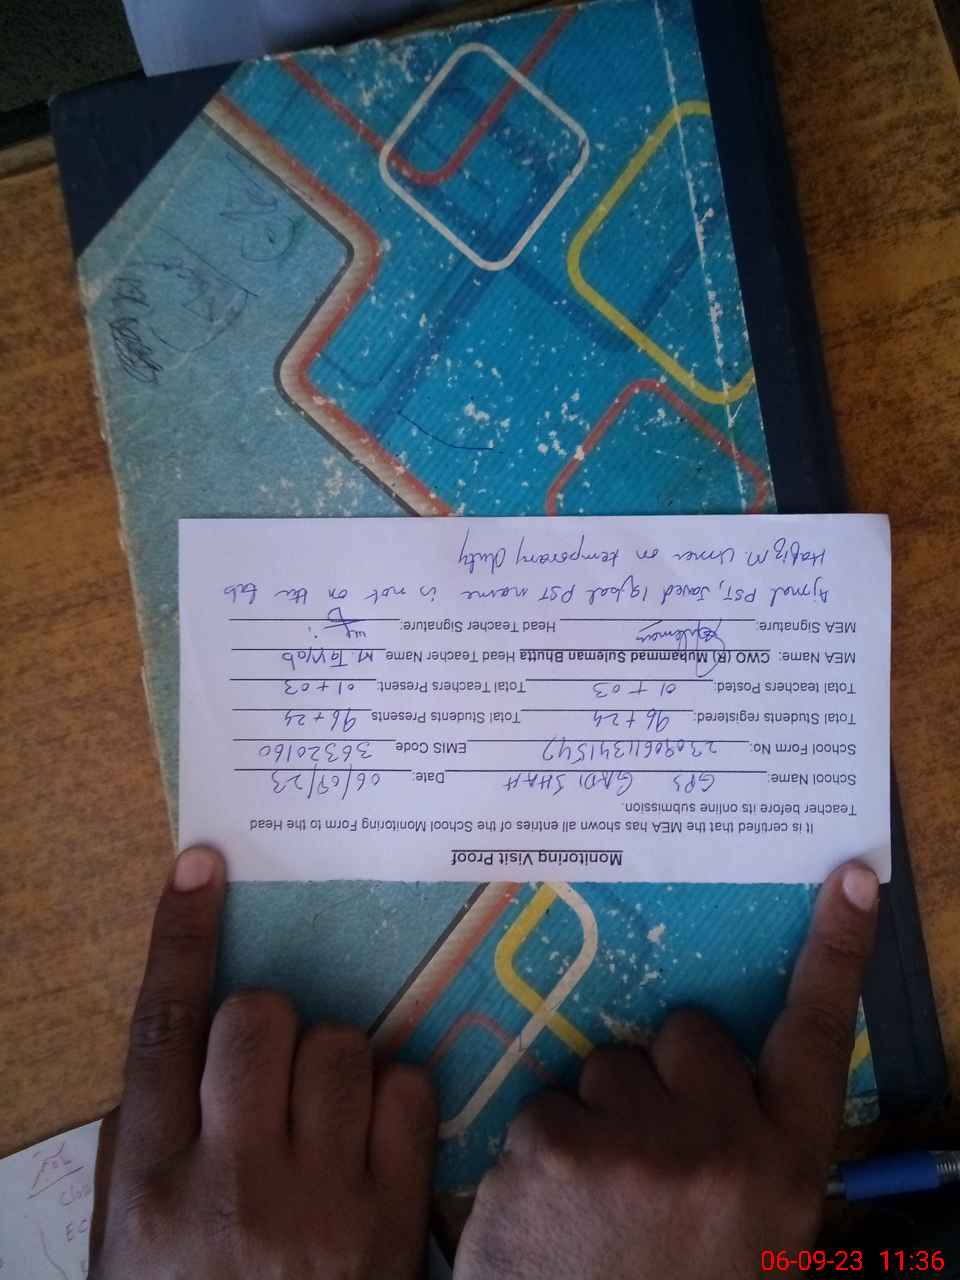 Monitoring Visit Proof
It is certified that the MEA has shown all entries of the School Monitoring Form to the Head
Teacher before its online submission.
School Name: GPS GADI SHAH Date: 06/09/23
School Form No: 23090611341547 EMIS Code 36320160
Total Students registered: 96 + 24 Total Students Presents 96 + 24
Total teachers Posted: 01 + 03 Total Teachers Present: 01 + 03
MEA Name: CWO (R) Muhammad Suleman Bhutta Head Teacher Name M. Tayyab
MEA Signature: Suleman Head Teacher Signature:
Ajmal PST, Javed Iqbal PST name is not on the tab
Hafiz M. Umer on temporary duty
06-09-23 11:36